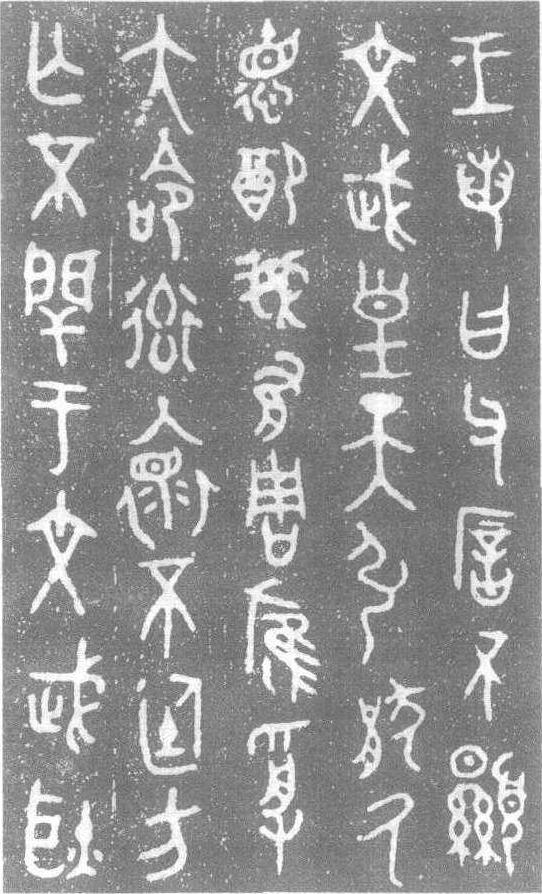 王若曰父㕆不顯
文武皇天引猒氒
德配我有周膺受
大命率懷不廷方
亡不閈于文武耿